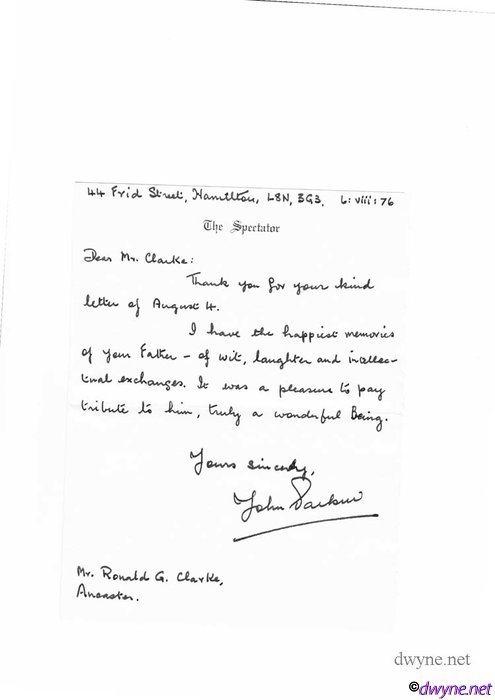 44 Frid Street, Hamilton, L8N, 3G3. 6:viii:76
The Spectator
Dear Mr. Clarke:
Thank you for your kind
letter of August 4.
I have the happiest memories
of your Father - of wit, laughter and intellec-
tual exchanges. It was a pleasure to pay
tribute to him, truly a wonderful Being.
Yours sincerely,
John
Mr. Ronald G. Clarke,
Ancaster.
dwyne.net
©dwyne.net